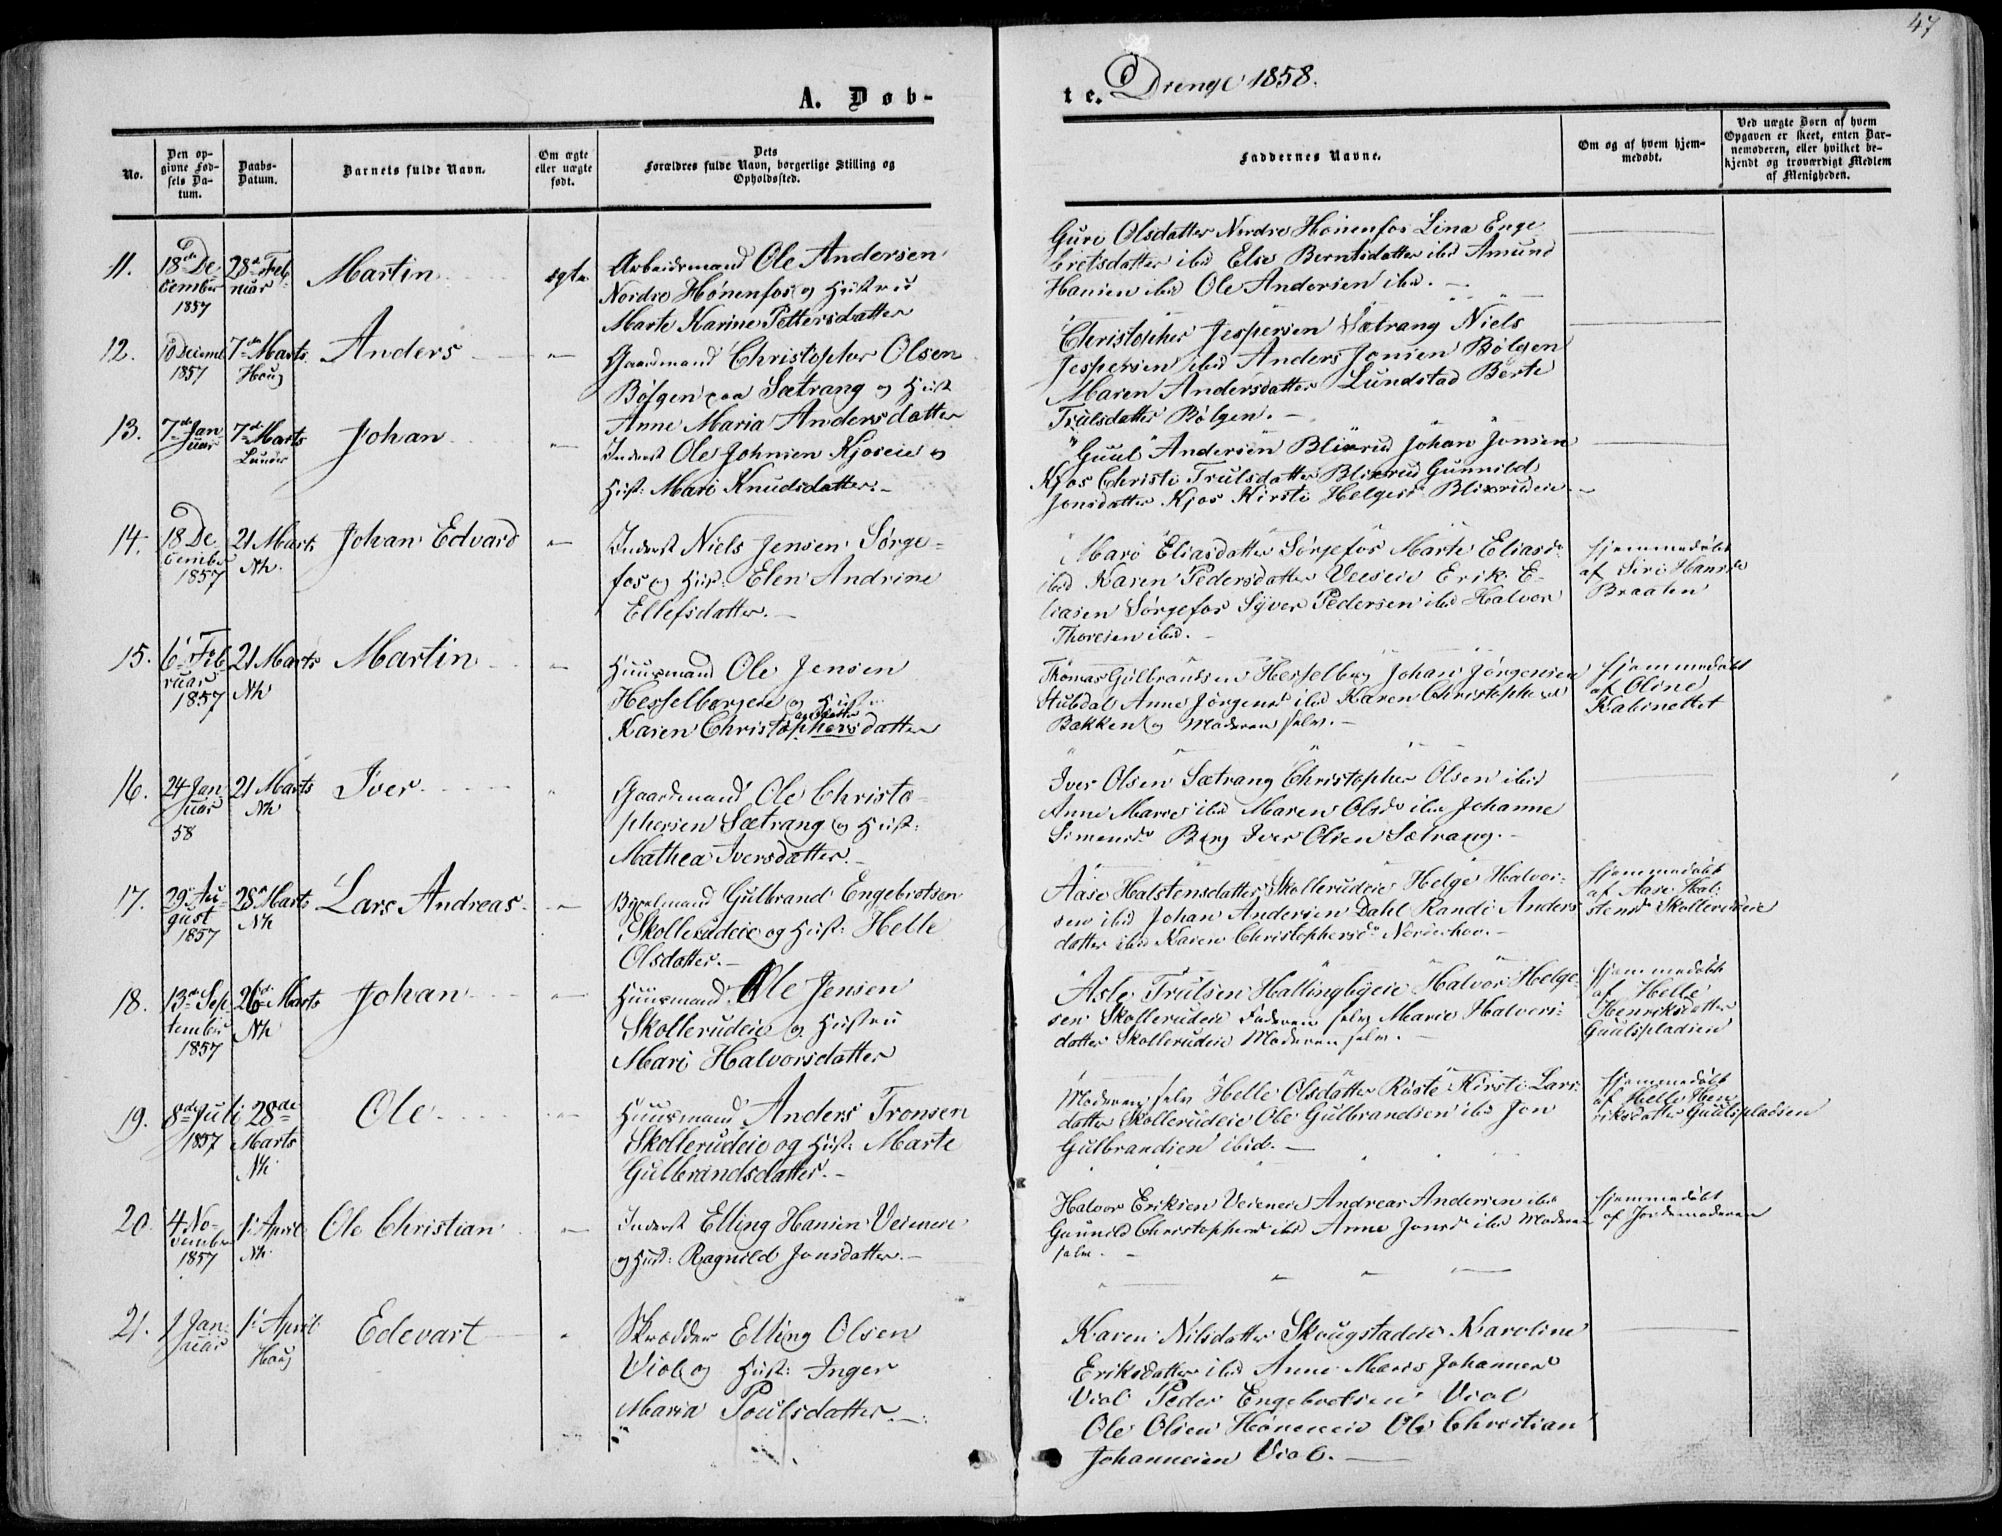 47
A. Døb-
te. Drenge 1858.
No.
Den op-
givne Fød-
sels Da-
tum.
Daabs-
Datum.
Barnets fulde Navn.
Om ægte
eller uægte
født.
Dets
Forældres fulde Navn, borgerlige Stilling og
Opholdssted.
Faddernes Navne.
Om og af hvem hjem-
medøbt.
Ved uægte Børn af hvem
Opgaven er skeet, enten Bar-
nemoderen, eller hvilket be-
kjendt og troværdigt Medlem
af Menigheden.
11.
18de De
cember
1857
28de Feb
ruar
Martin
ægte
Arbeidsmand Ole Andersen
Nordre Hønenfos og Hustru
Marte Karine Pettersdatter
Guri Olsdatter Nordre Hønenfos Lina Enge
bretsdatter ibid Else Berntsdatter ibid Amund
Hansen ibid Ole Andersen ibid.
12.
10 Decembr
1857
7de Marts
Houg
Anders
Gaardmand Christopher Olsen
Bølgen paa Sætrang og Hust
Anne Maria Andersdatter
Christopher Jespersen Sætrang Niels
Jespersen ibid Anders Jonsen Bølgen
Maren Andersdatter Lundstad Berte
Trulsdatter Bølgen.
13.
7de Jan
uar
7de Marts
Lunder
Johan
Inderst Ole Johnsen Kjoseie og
Hust: Mari Knudsdatter.
Guul Andersen Blixrud Johan Jonsen
Kjos Christi Trulsdatter Blixrud Gunnild
Jonsdatter Kjos Kirsti Helgesd Blixrudeie
14.
18 De
cember
1857
21 Marts
Nh.
Johan Edvard
Inderst Niels Jensen Sørge-
fos og Hust: Elen Andrine
Ellefsdatter.
Mari Eliasdatter Sørgefos Marte Eliasdr
ibid Karen Pedersdatter Veeseie Erik E-
liasen Sørgefos Syver Pedersen ibid Halvor
Thoresen ibid.
hjemmedøbt
af Siri Hansdr
Braaten
15.
6te Feb
ruar
1857
21 Marts
Nh
Martin
Huusmand Ole Jensen
Hesselbergeie og Hustru
Karen Christophersdatter
Thomas Gulbrandsen Hesselberg Johan Jørgensen
Stubdal Anne Jørgensd ibid Karen Christophersd
Bakken og Moderen selv.
hjemmedøbt
af Oline
Kabinettet
16.
24 Jan
uar
58
21 Marts
Nh
Iver
Gaardmand Ole Christo-
phersen Sætrang og Hust:
Mathea Iversdatter.
Iver Olsen Sætrang Christopher Olsen ibid
Anne Marie ibid Maren Olsdr ibid Johanne
Simensdr Berg Iver Olsen Sætrang.
17.
29 Au-
gust
1857
28de Marts
Nh
Lars Andreas
Bygselmand Gulbrand Engebretsen
Skollerudeie og Hust: Helle
Olsdatter.
Aase Halstensdatter Skollerudeie Helge Halvor-
sen ibid Johan Andersen Dahl Randi Anders
datter ibid Karen Christophersdr Norderhov.
hjemmedøbt
af Aase Hal-
stensdr Skollerudeie
18.
13de Sep
tember
1857
26de Marts
Nh
Johan
Huusmand Ole Jensen
Skollerudeie og Hustru
Mari Halvorsdatter
Asle Trulsen Hallingbyeie Halvor Helge-
sen Skollerudeie Faderen selv Marie Halvors-
datter Skollerudeie Moderen selv.
hjemmedøbt
af Helle
Henriksdatter
Guulspladsen
19.
8de Juli
1857
28de
Marts
Nh
Ole
Huusmand Anders Tronsen
Skollerudeie og Hust: Marte
Gulbrandsdatter.
Moderen selv Helle Olsdatter Røste Kirsti Lars-
datter Skollerudeie Ole Gulbrandsen ibid Jon
Gulbrandsen ibid.
hjemmedøbt
af Helle Hen
riksdatter Guulspladsen
20.
4 No-
vember
1857
1ste April
Nh.
Ole Christian
Inderst Elling Hansen Veieneie
og Hust: Ragnild Jonsdatter.
Halvor Eriksen Veieneie Andreas Andersen ibid
Gunnild Christophersd ibid Anne Jonsd ibid Moderen
selv.
hjemmedøbt
af Jordemoderen
21.
1 Jan-
uar
1ste April
Houg
Edevart
Skrædder Elling Olsen
Viol og Hust: Inger
Maria Poulsdatter.
Karen Nilsdatter Skougstadeie Karoline
Eriksdatter ibid Anne Maria Johannesd
Viol Peder Engebretsen Viol
Ole Olsen Høneneie Ole Christian
Johannesen Viol.